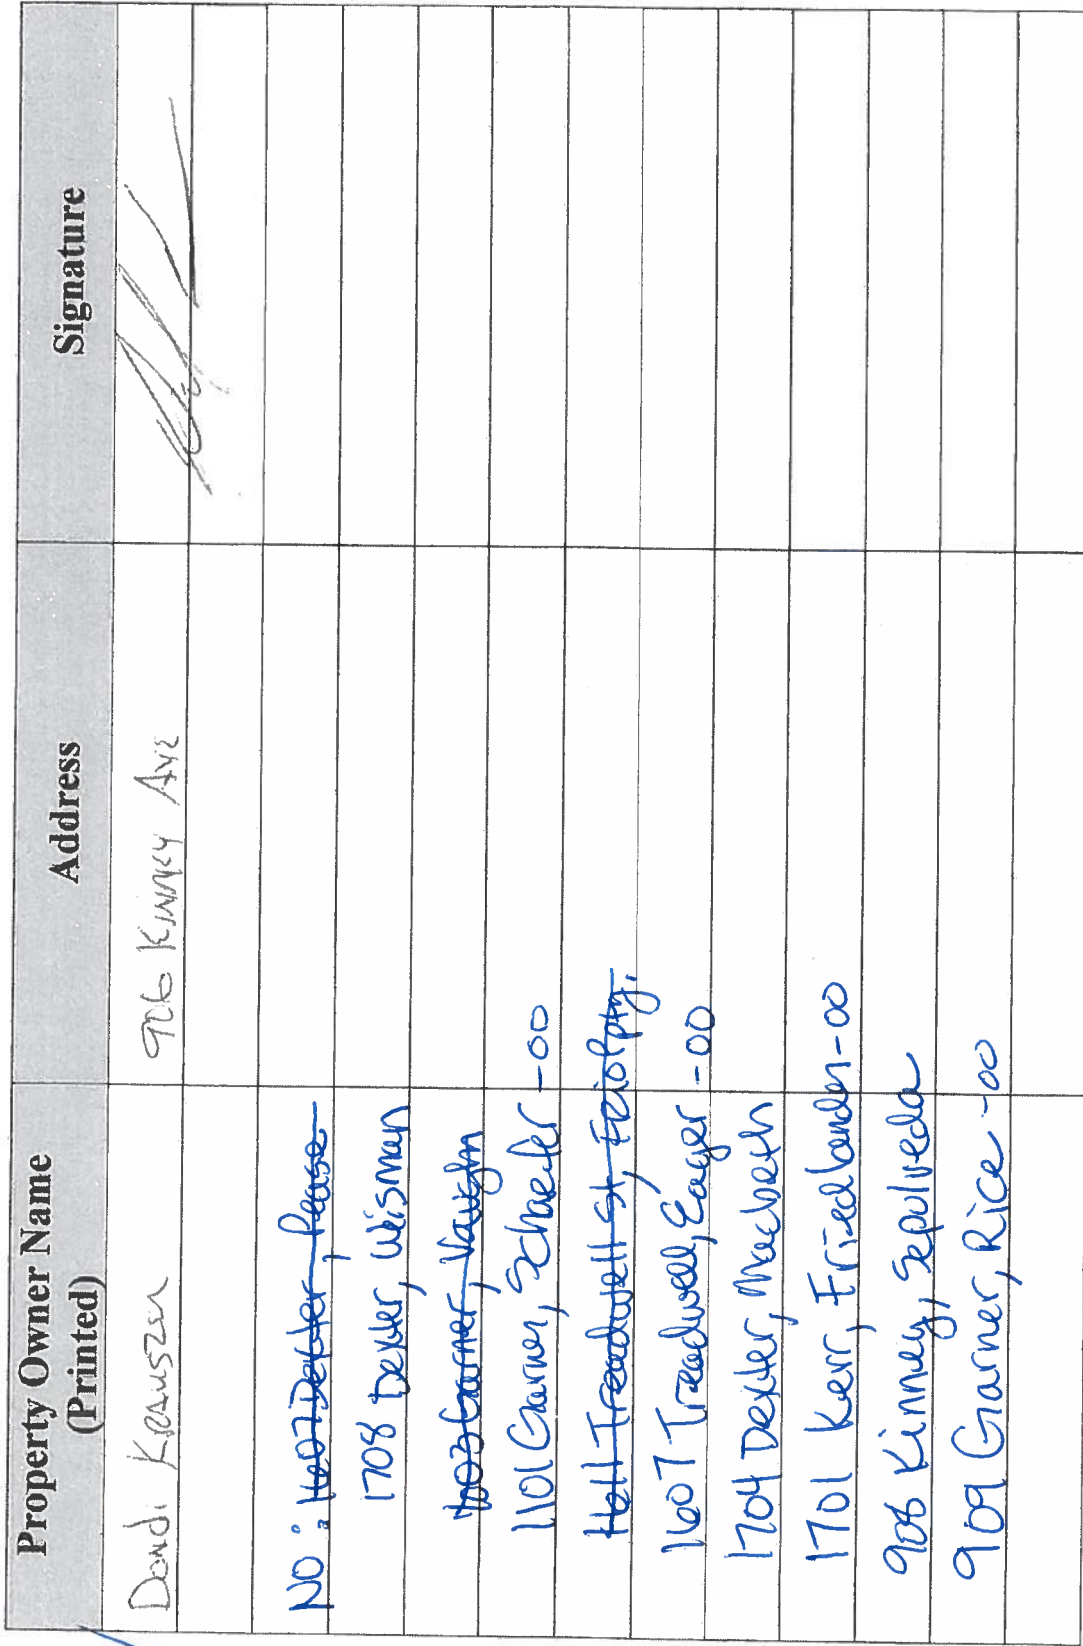 Property Owner Name
(Printed)
Address
Signature
Dandi Krauszer
906 Kinney Ave
NO: 1607 Dexter, Pease
1708 Dexter, Weisman
1103 Garner, Vaughn
1101 Garner, Schaefer -00
1611 Treadwell St, Frio Ppty.
1607 Treadwell, Eager -00
1704 Dexter, Macbeth
1701 Kerr, Friedlander-00
908 Kinney, Sepulveda
909 Garner, Rice -00